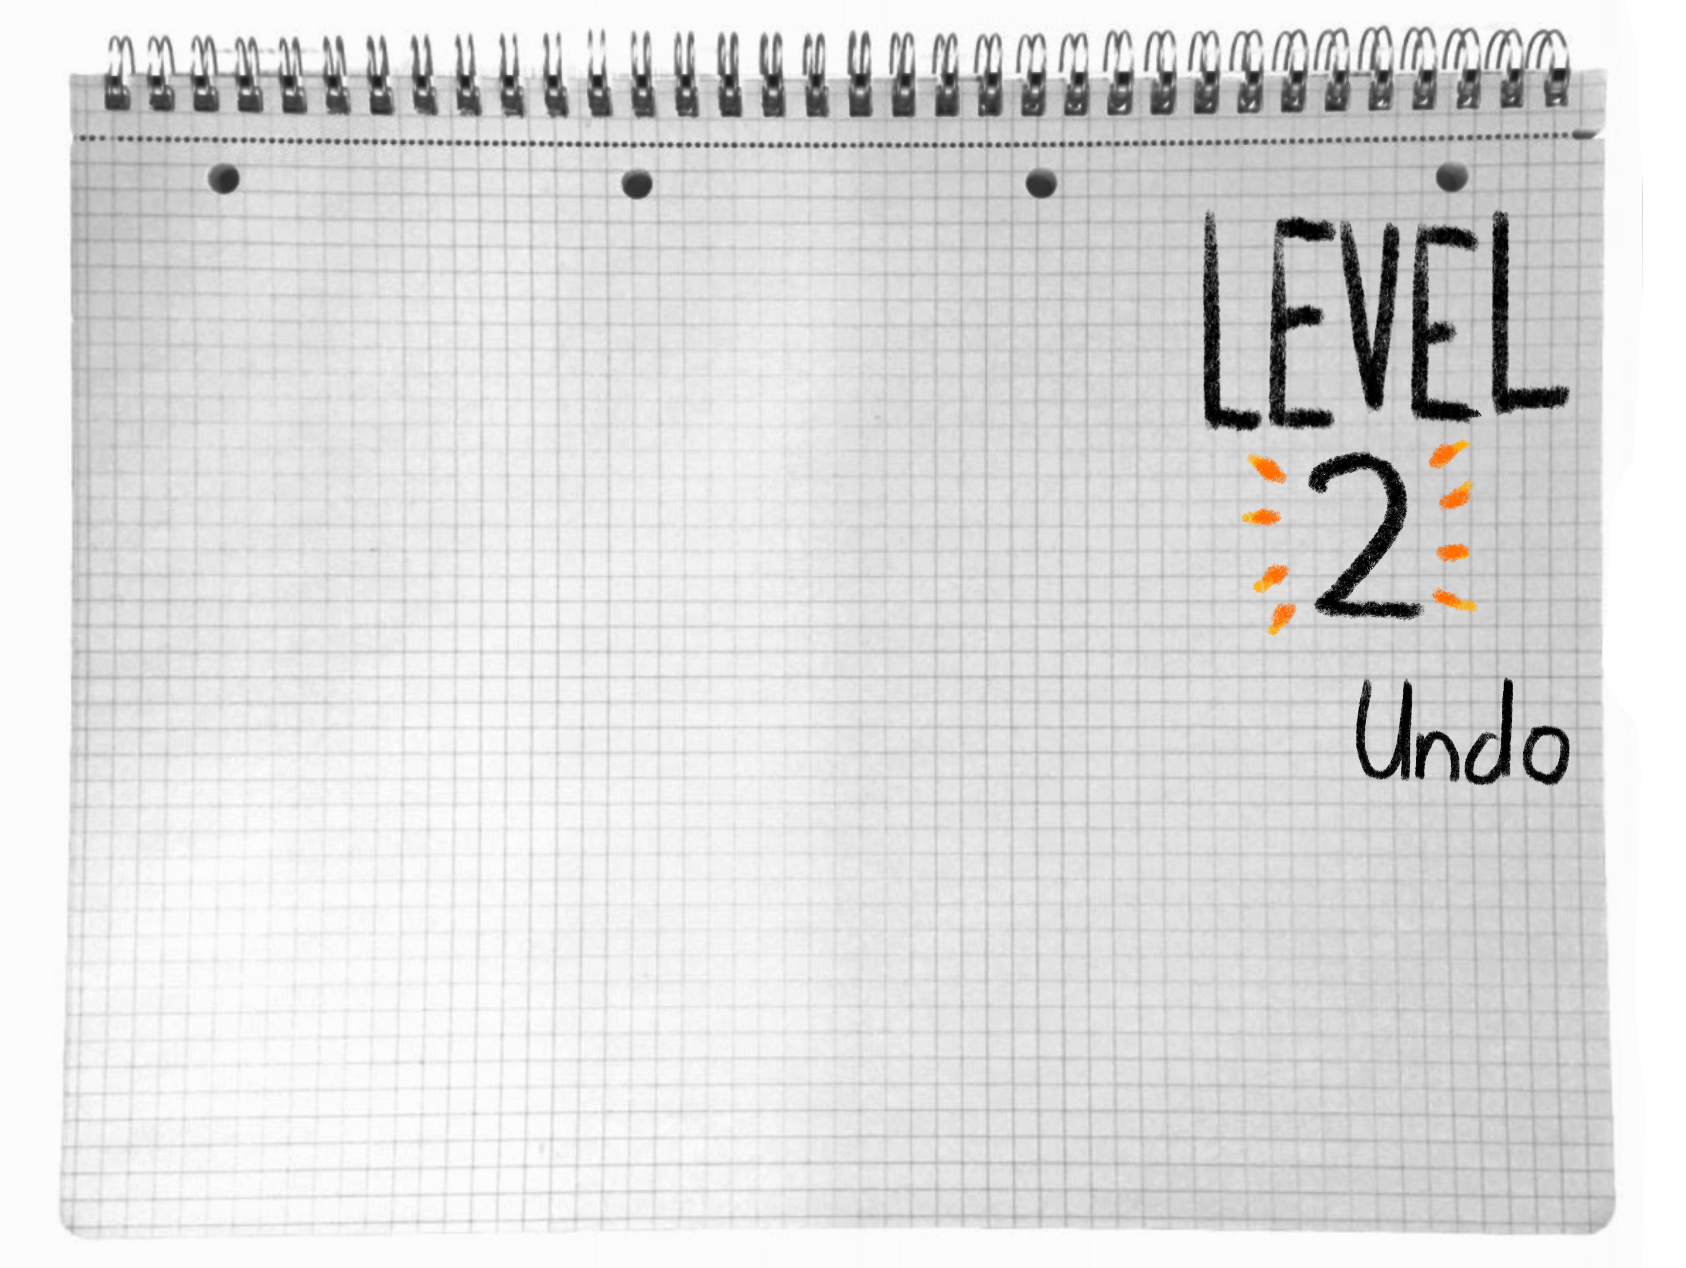 LEVEL
2
Undo